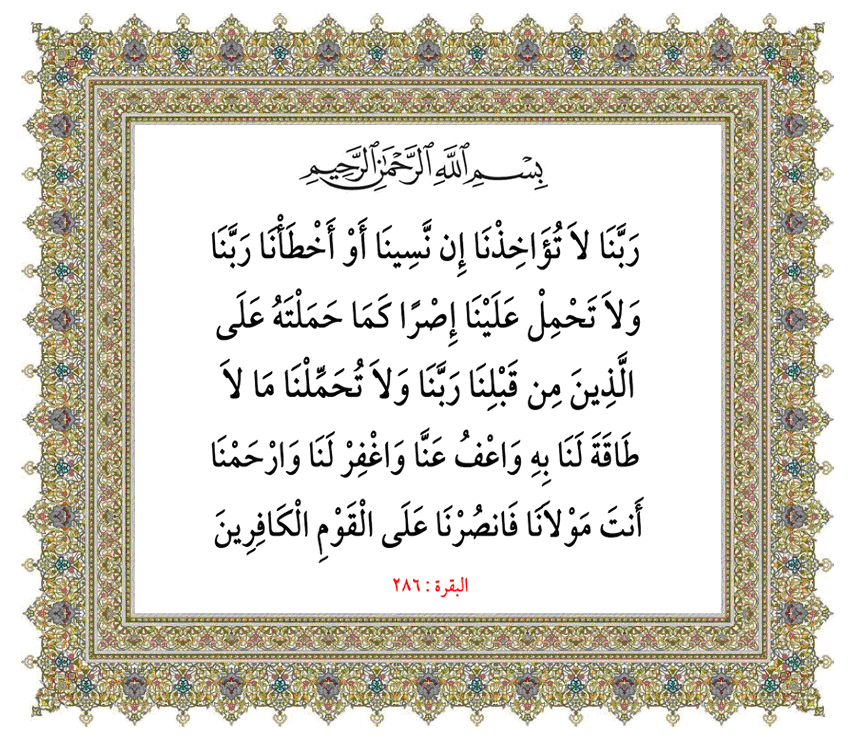 بِسْمِ ٱللَّهِ ٱلرَّحْمَٰنِ ٱلرَّحِيمِ
رَبَّنَا لاَ تُؤَاخِذْنَا إِن نَّسِينَا أَوْ أَخْطَأْنَا رَبَّنَا
وَلاَ تَحْمِلْ عَلَيْنَا إِصْرًا كَمَا حَمَلْتَهُ عَلَى
الَّذِينَ مِن قَبْلِنَا رَبَّنَا وَلاَ تُحَمِّلْنَا مَا لاَ
طَاقَةَ لَنَا بِهِ وَاعْفُ عَنَّا وَاغْفِرْ لَنَا وَارْحَمْنَا
أَنتَ مَوْلاَنَا فَانصُرْنَا عَلَى الْقَوْمِ الْكَافِرِينَ
البقرة : ٢٨٦